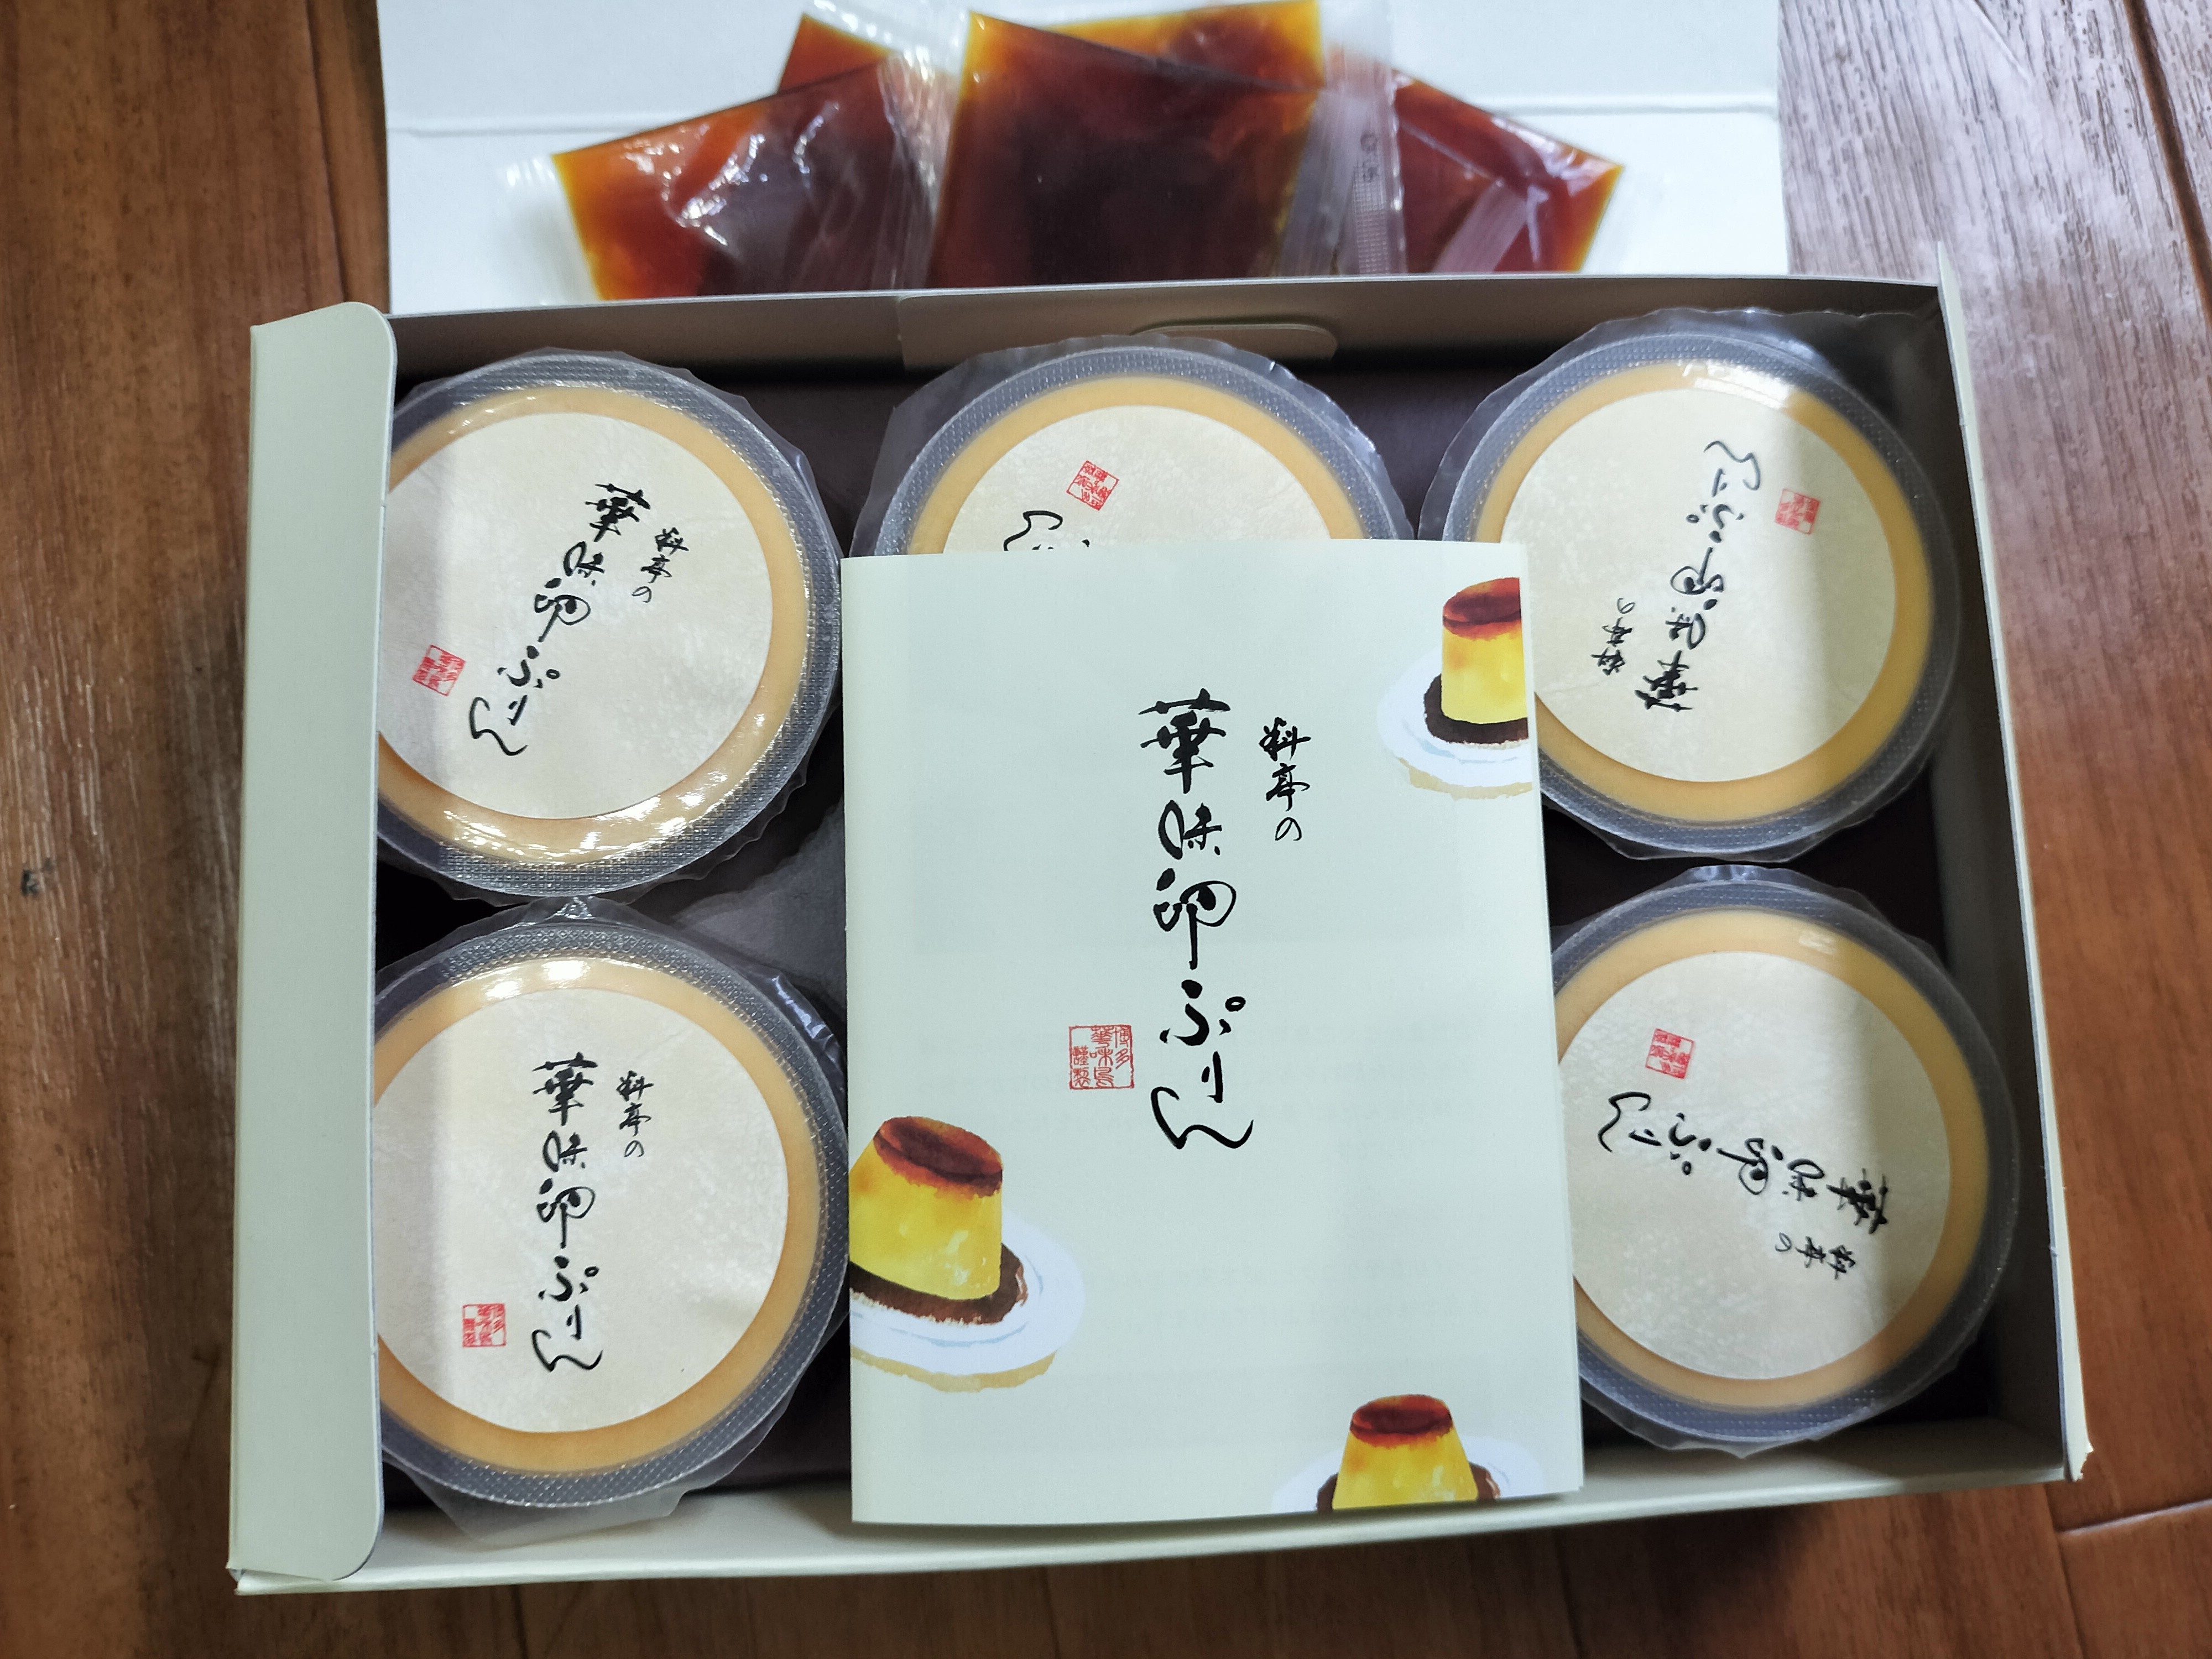 料亭の
華味卵ぷりん
博多
華味鳥
謹製
料亭の
華味卵ぷりん
料亭の
華味卵ぷりん
料亭の
華味卵ぷりん
料亭の
華味卵ぷりん